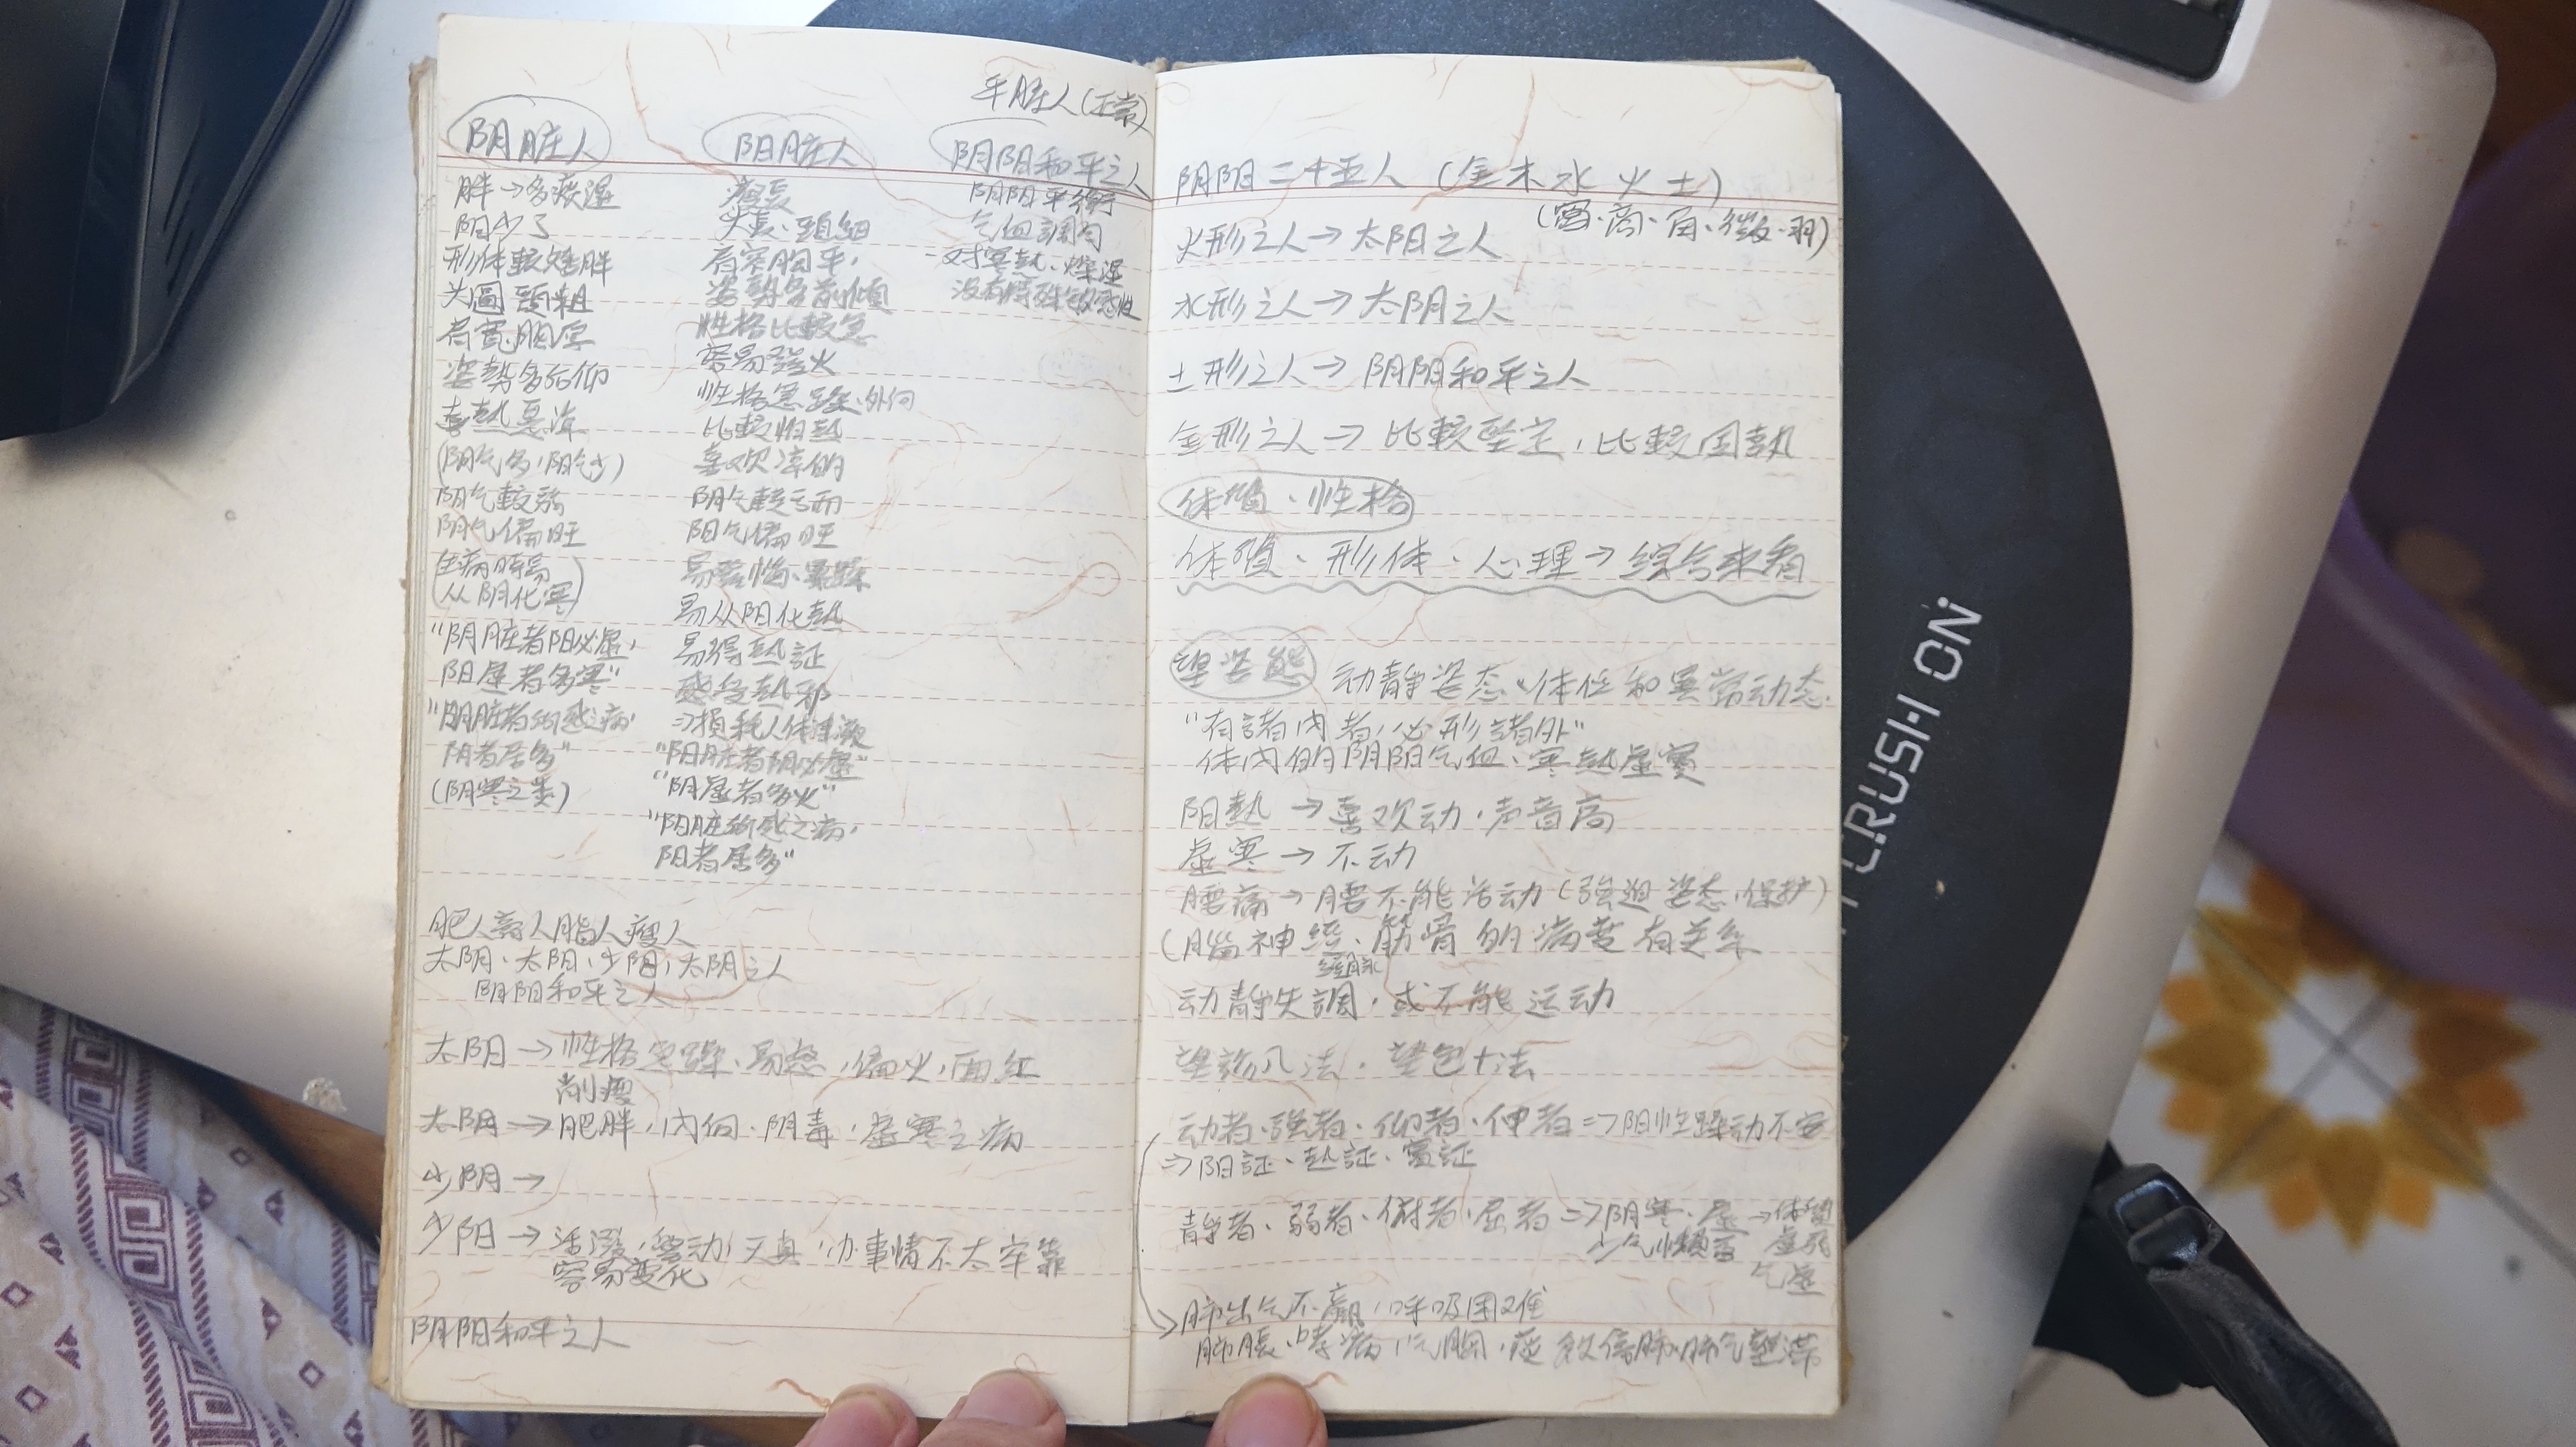 平脏人(正常)
阴脏人
胖→多痰湿
阳少了
形体較矮胖
头圓頸粗
肩寬胸厚
姿勢多后仰
喜熱惡凉
(阴气多,阳气少)
阳气較弱
阴气偏旺
生病時易
(从阴化寒)
“阴脏者阳必虛,
阳虛者多寒”
“阴脏者所感病,
阴者居多”
(阴寒之类)
阳脏人
瘦長
头長、頸細
肩窄胸平,
姿勢多前傾
性格比較急
容易發火
性格急躁、外向
比較怕熱
喜欢凉的
阴气較亏而
阳气偏旺
易从阳化熱
易得熱証
感受熱邪
⇒損耗人体津液
“阳脏者阴必虛”
“阴虛者多火”
“阳脏所感之病,
阳者居多”
阴阳和平之人
阴阳平衡
气血調匀
-对寒熱、燥湿
没有特殊敏感性
肥人膏人脂人瘦人
太阴、太阳,少阴,太阴之人
阴阳和平之人
太阳→性格急躁、易怒,偏火,面紅
削瘦
太阴→肥胖,内向、阴毒,虛寒之病
少阴→
少阳→活潑,好动,天真,办事情不太牢靠
容易变化
阴阳和平之人
阴阳二十五人 (金木水火土)
(宫、商、角、徵、羽)
火形之人→太阳之人
水形之人→太阴之人
土形之人→阴阳和平之人
金形之人→比較坚定,比較固執
体質、性格
体質、形体、心理→综合来看
望姿態 动静姿态、体位和異常动态.
“有諸内者,必形諸外”
体内的阴阳气血、寒熱虛實
阳熱→喜欢动,声音高
虛寒→不动
腰痛→腰不能活动(强迫姿态,保护)
(腦神經、筋骨的病变有关系
經脉
动静失調,或不能运动
望診八法,望色十法
动者、强者、仰者、伸者⇒阳性躁动不安
⇒阳証、熱証、實証
静者、弱者、俯者,屈者⇒阴寒、虛→体質
虛弱
少气懒言
气虛
肺出气不贏,呼吸困难
肺脹、哮病,气胸,痰飲停肺,肺气壅滞
CRUSH ON